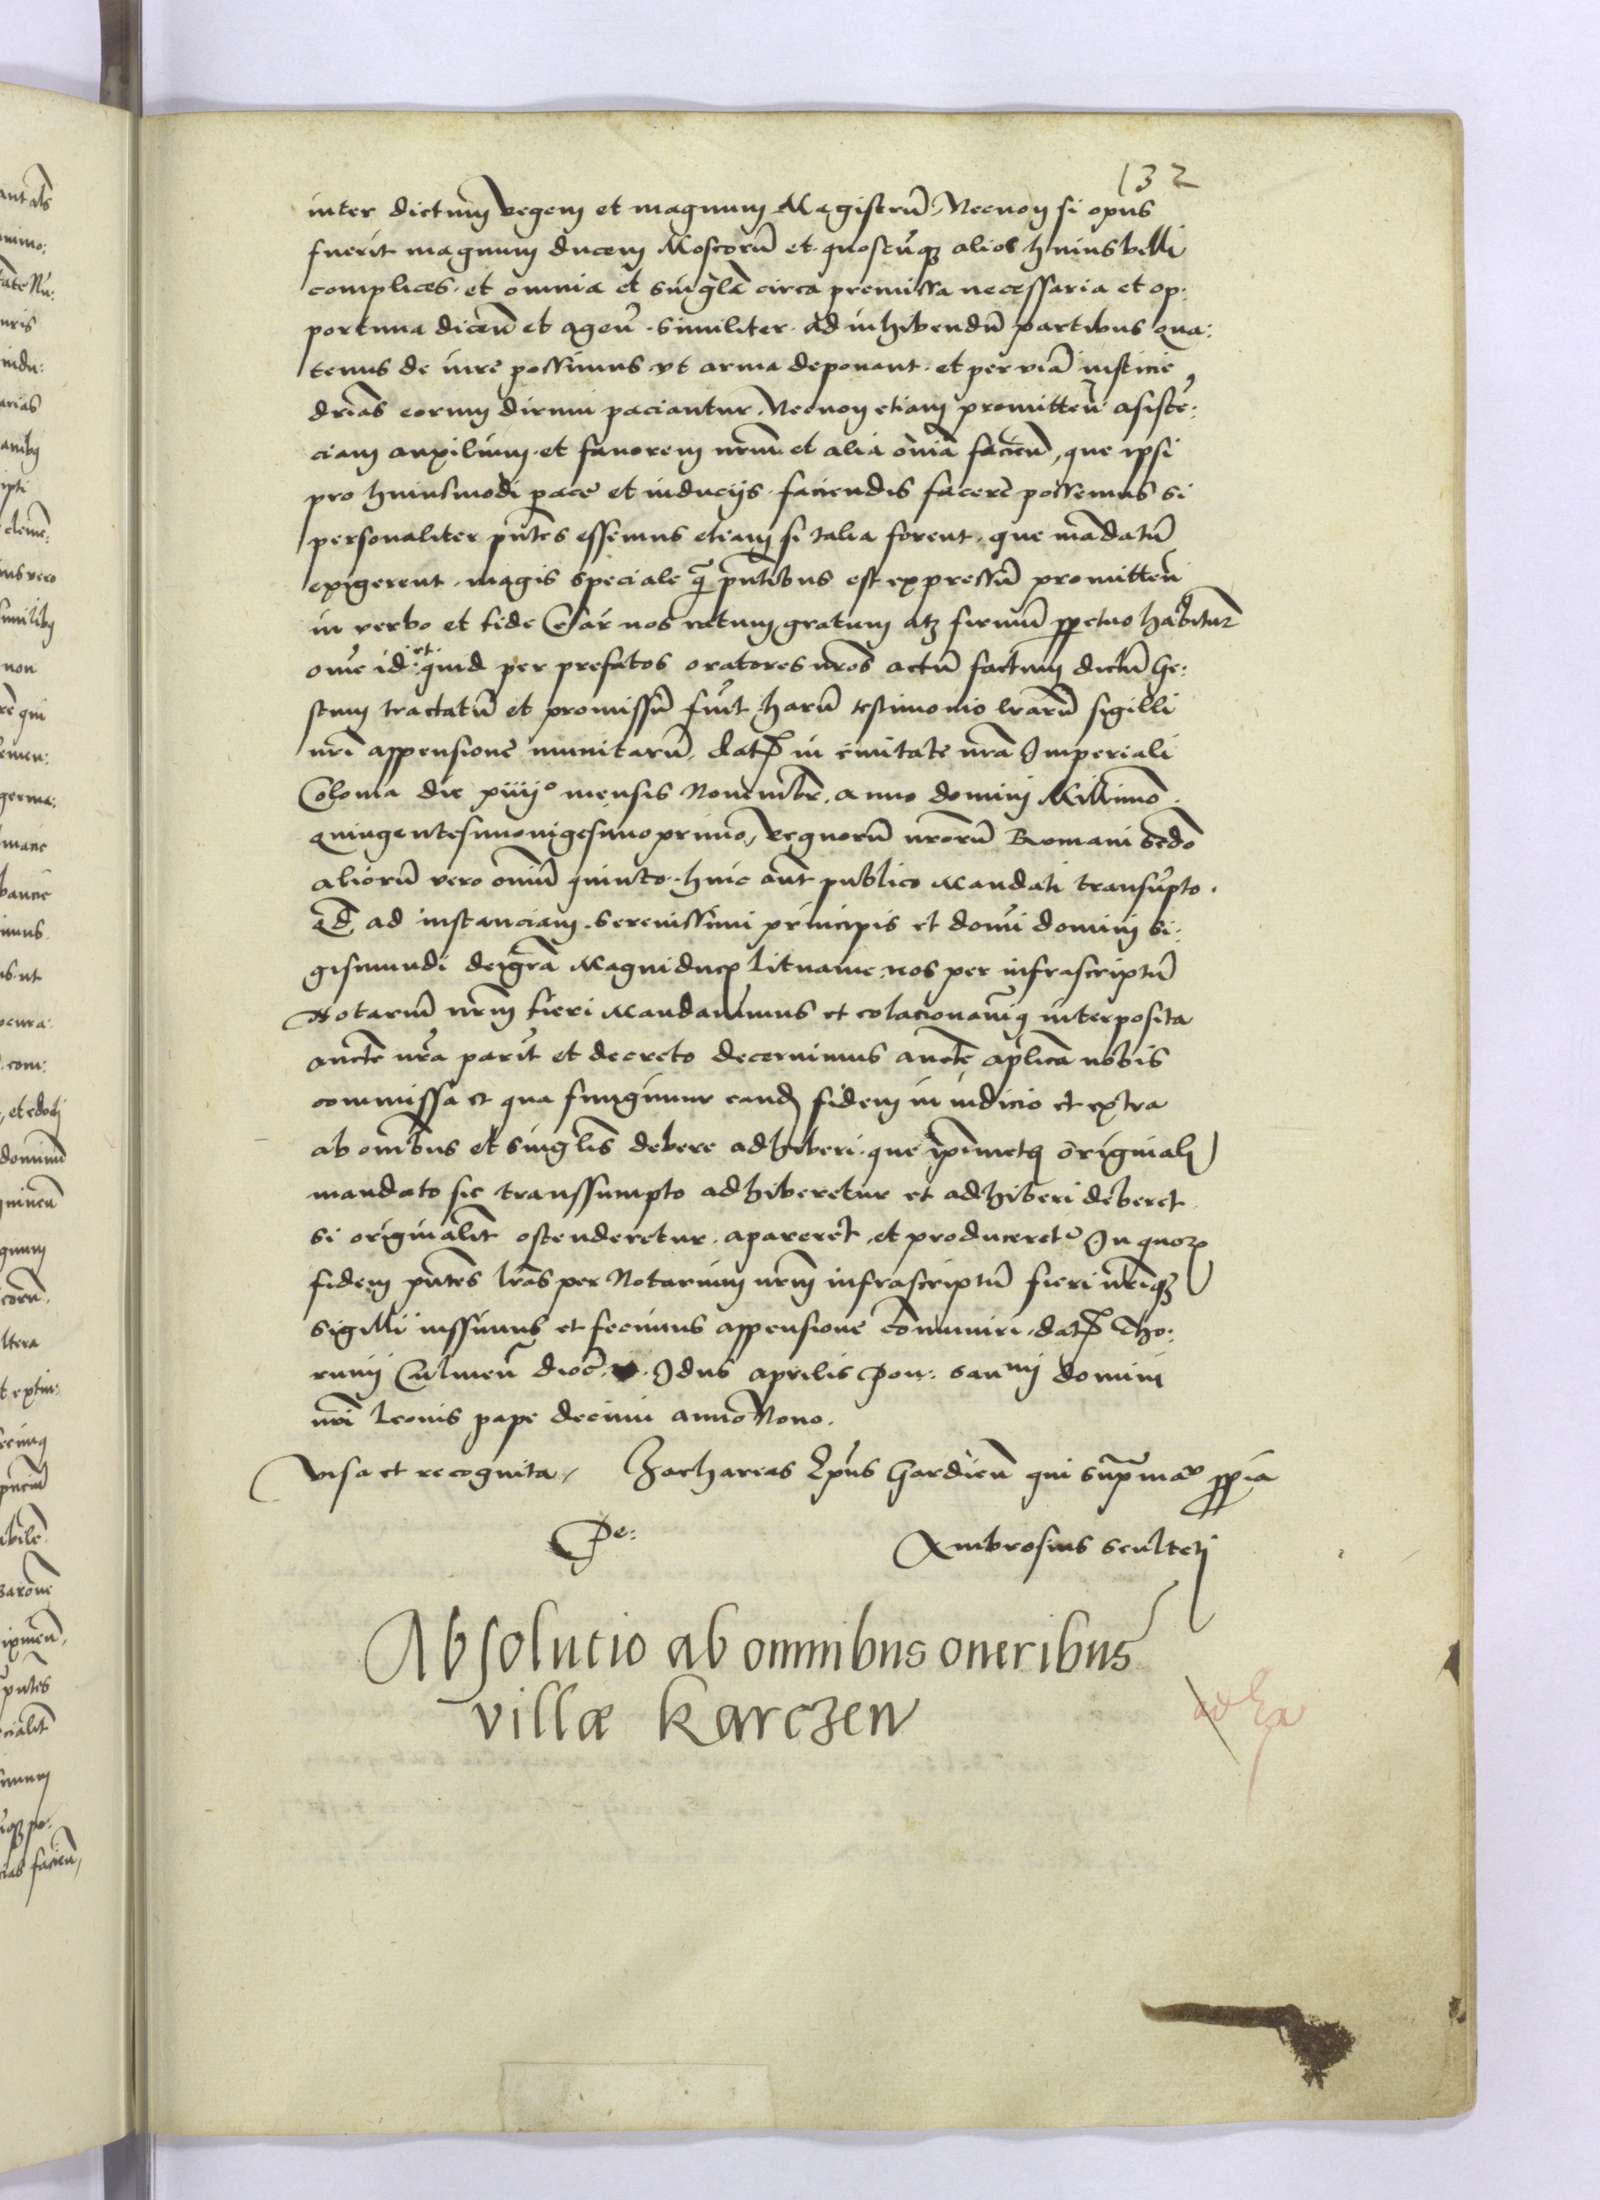 132
inter dictum regem et magnum Magistrū, Necnon si opus
fuerit magnum ducem Moscorū et quoscūq3 alios huius belli
complices. et omnia et singla circa premissa necessaria et op:
portuna dicēn et agen̄. similiter. ad inhibendū partibus qua:
tenus de iure possimus vt arma deponant. et per viā iusticie
dr̄ias eorum dirimi paciantur. Necnon etiam promitten̄ asistē:
ciam auxilium. et fauorem nr̄um et alia om̄ia facien̄, que ipsi
pro huiusmodi pace et inducijs. faciendis facere possemus si
personaliter pn̄tes essemus etiam si talia forent. que mādatū
exigerent. magis speciale q̄ pn̄tibus est expressū promitten̄
in verbo et fide Cesār nos ratum gratum atq3 firmū perpetuo habitur
om̄e id et quid per prefatos oratores nr̄os actū factum dictū ge:
stum tractatū et promissū fuīt harū testimonio lrarū sigilli
nr̄i appensione munitarū. dat in ciuitate nr̄a Imperiali
Colonia die xiiijo mensis Nouembr̄. anno domini Millimo
quingentesimouigesimoprimo, regnorū nr̄orū Romani secdo
aliorū vero om̄iū quinto. huic aut publico Mandati transūpto.
qd ad instanciam. Serenissimi principis et domi domini Si:
gismundi dei grā Magni duc Lituanie nos per infrascriptū
Notariū nr̄m fieri Mandauimus et colacionauimq interposita
aucte nr̄a parīt et decreto decernimus aucte aplica nobis
commissa et qua fungimur eand fidem in iudicio et extra
ab om̄ibus et singlis debere adhiberi. que ipimetq originali
mandato sic transsumpto adhiberetur et adhiberi deberet
si originalit ostenderetur. apareret, et producerētr In quor
fidem pn̄tes lr̄as per Notarium nr̄m infrascriptū fieri nr̄iq3
sigilli iussimus et fecimus appensione cōmuniri. dat Tho:
runij Culmen̄ dioc̄. v. Idus aprilis Pon: sanmi domini
nr̄i Leonis pape decimi anno Nono.
Visa et recognita, Zacharias Ep̄us Gardien̄ qui supra mao ppria
Pe:
Ambrosius Sculteti
Absolutio ab omnibus oneribus
villæ Karczen